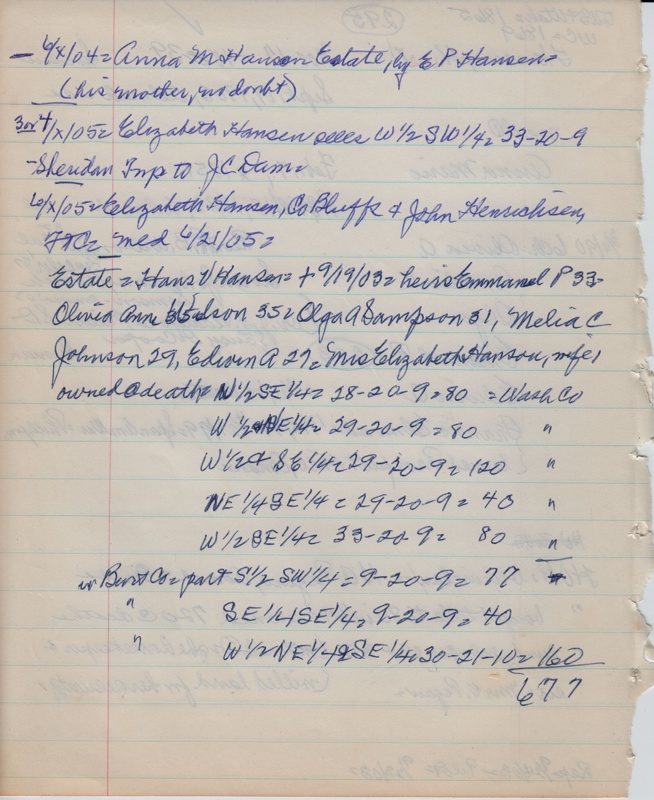 - 4/X/04 = Anna M Hansen Estate, by E P Hansen =
(his mother, no doubt)
3 or 4/X/05 = Elizabeth Hansen sells W 1/2 SW 1/4 = 33-20-9
- Sheridan Twp to J C Dam =
4/X/05 = Elizabeth Hansen, Co Bluffs & John Henrichsen,
med 4/21/05 =
Estate = Hans V Hansen = + 9/19/03 = heirs Emmanel P 33-
Olivia Anne Wilson 35 = Olga A Sampson 31, Melia C
Johnson 29, Edwin A 27 = Mrs Elizabeth Hanson, wife,
owned @ death = N 1/2 SE 1/4 = 28-20-9 = 80 = Wash Co
W 1/2 NE 1/4 = 29-20-9 = 80 "
W 1/2 & SE 1/4 = 29-20-9 = 120 "
NE 1/4 SE 1/4 = 29-20-9 = 40 "
W 1/2 SE 1/4 = 33-20-9 = 80 "
in Burt Co = part S 1/2 SW 1/4 = 9-20-9 = 77
" SE 1/4 SE 1/4 = 9-20-9 = 40
" W 1/2 NE 1/4 & SE 1/4 = 30-21-10 = 160
677